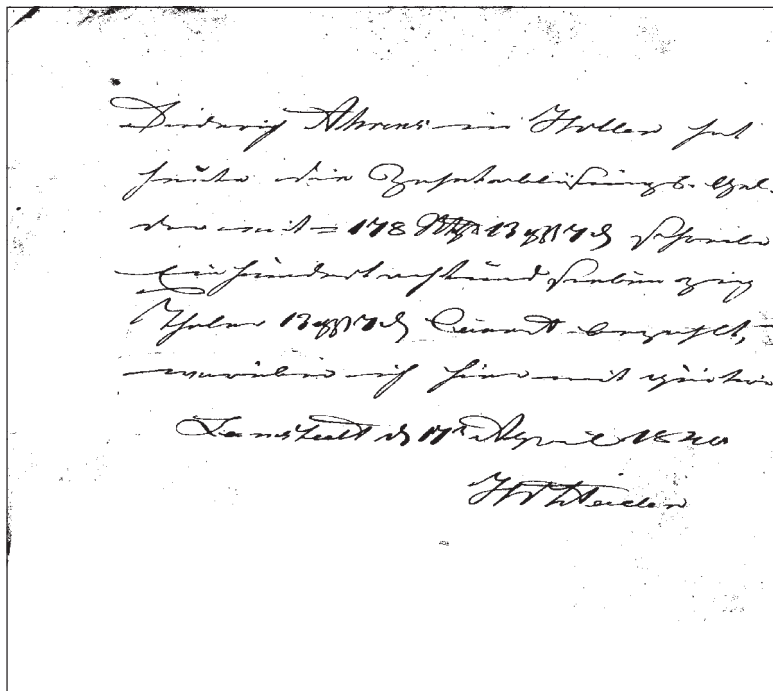 Diederich Ahrens in Hollen hat
heute die Zehntablösungs-Gel-
der mit = 178 Rthr 13 ggr 7 d schreibe
Ein hundert acht und siebenzig
Thaler 13 ggr 7 d Courant bezahlt,
worüber ich hier mit quitire
Lamstedt d 17t April 1840